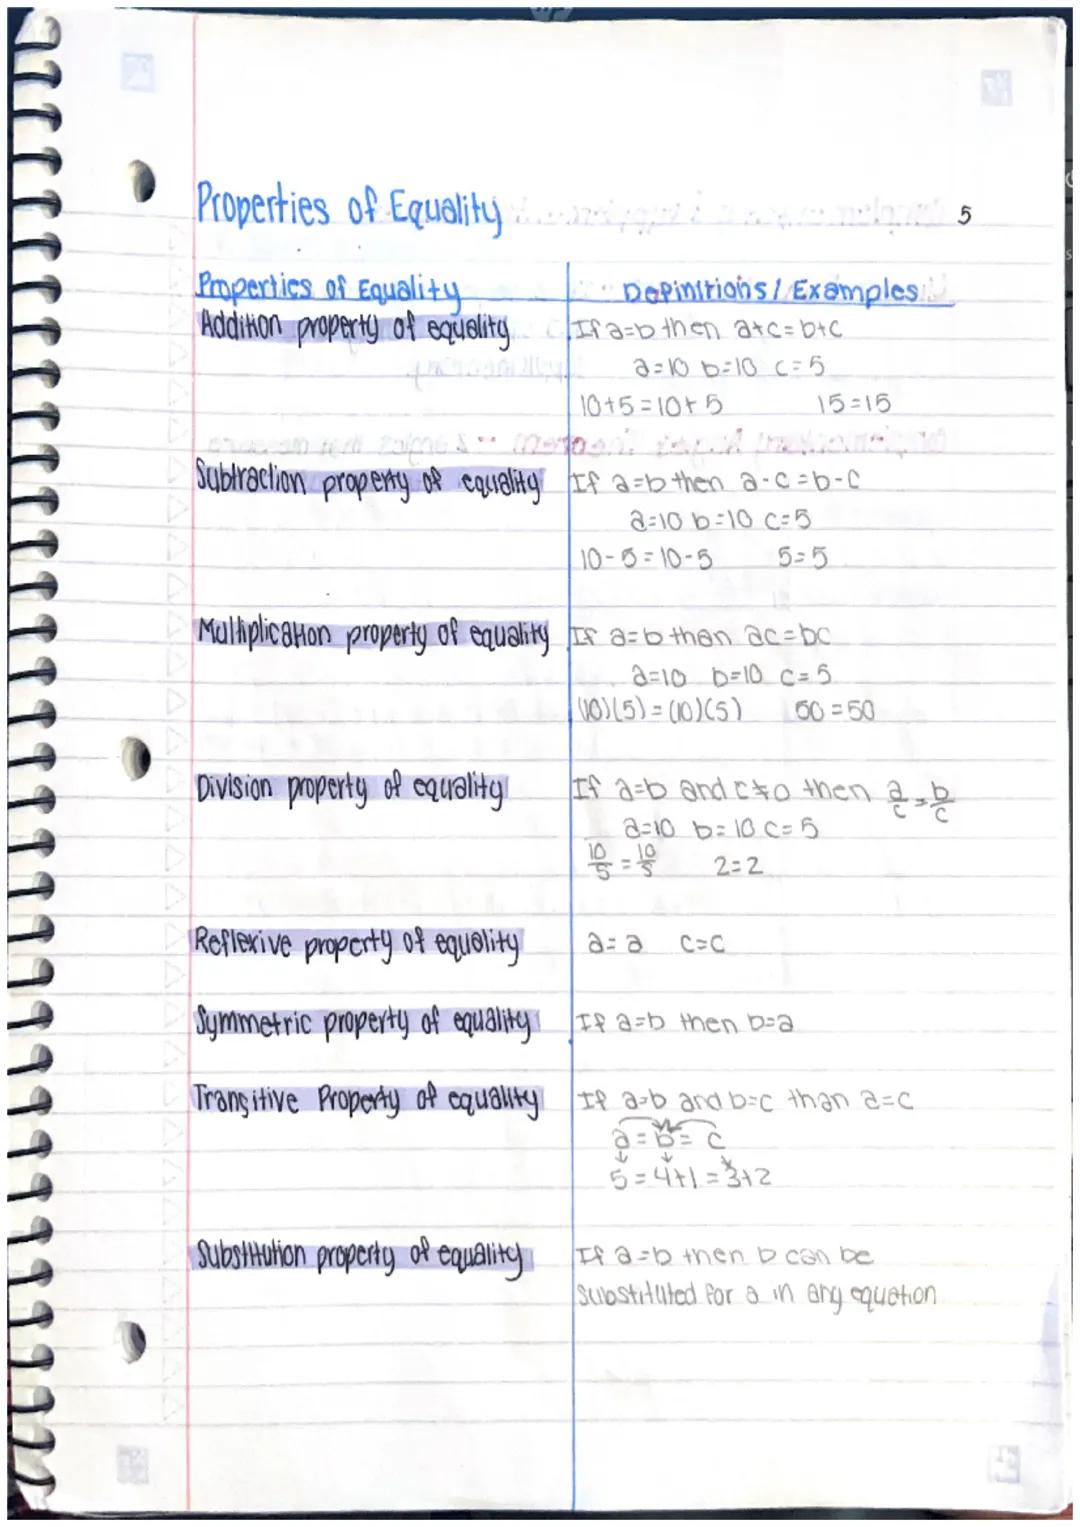 Properties of Equality 5
Properties of Equality Definitions / Examples
Addition property of equality If a=b then a+c=b+c
a=10 b=10 c=5
10+5=10+5 15=15
Subtraction property of equality If a=b then a-c=b-c
a=10 b=10 c=5
10-5=10-5 5=5
Multiplication property of equality If a=b than ac=bc
a=10 b=10 c=5
(10)(5)=(10)(5) 50=50
Division property of equality If a=b and c≠0 then a/c=b/c
a=10 b=10 c=5
10/5=10/5 2=2
Reflexive property of equality a=a c=c
Symmetric property of equality If a=b then b=a
Transitive Property of equality If a=b and b=c than a=c
a=b=c
5=4+1=3+2
Substitution property of equality If a=b then b can be
substituted for a in any equation